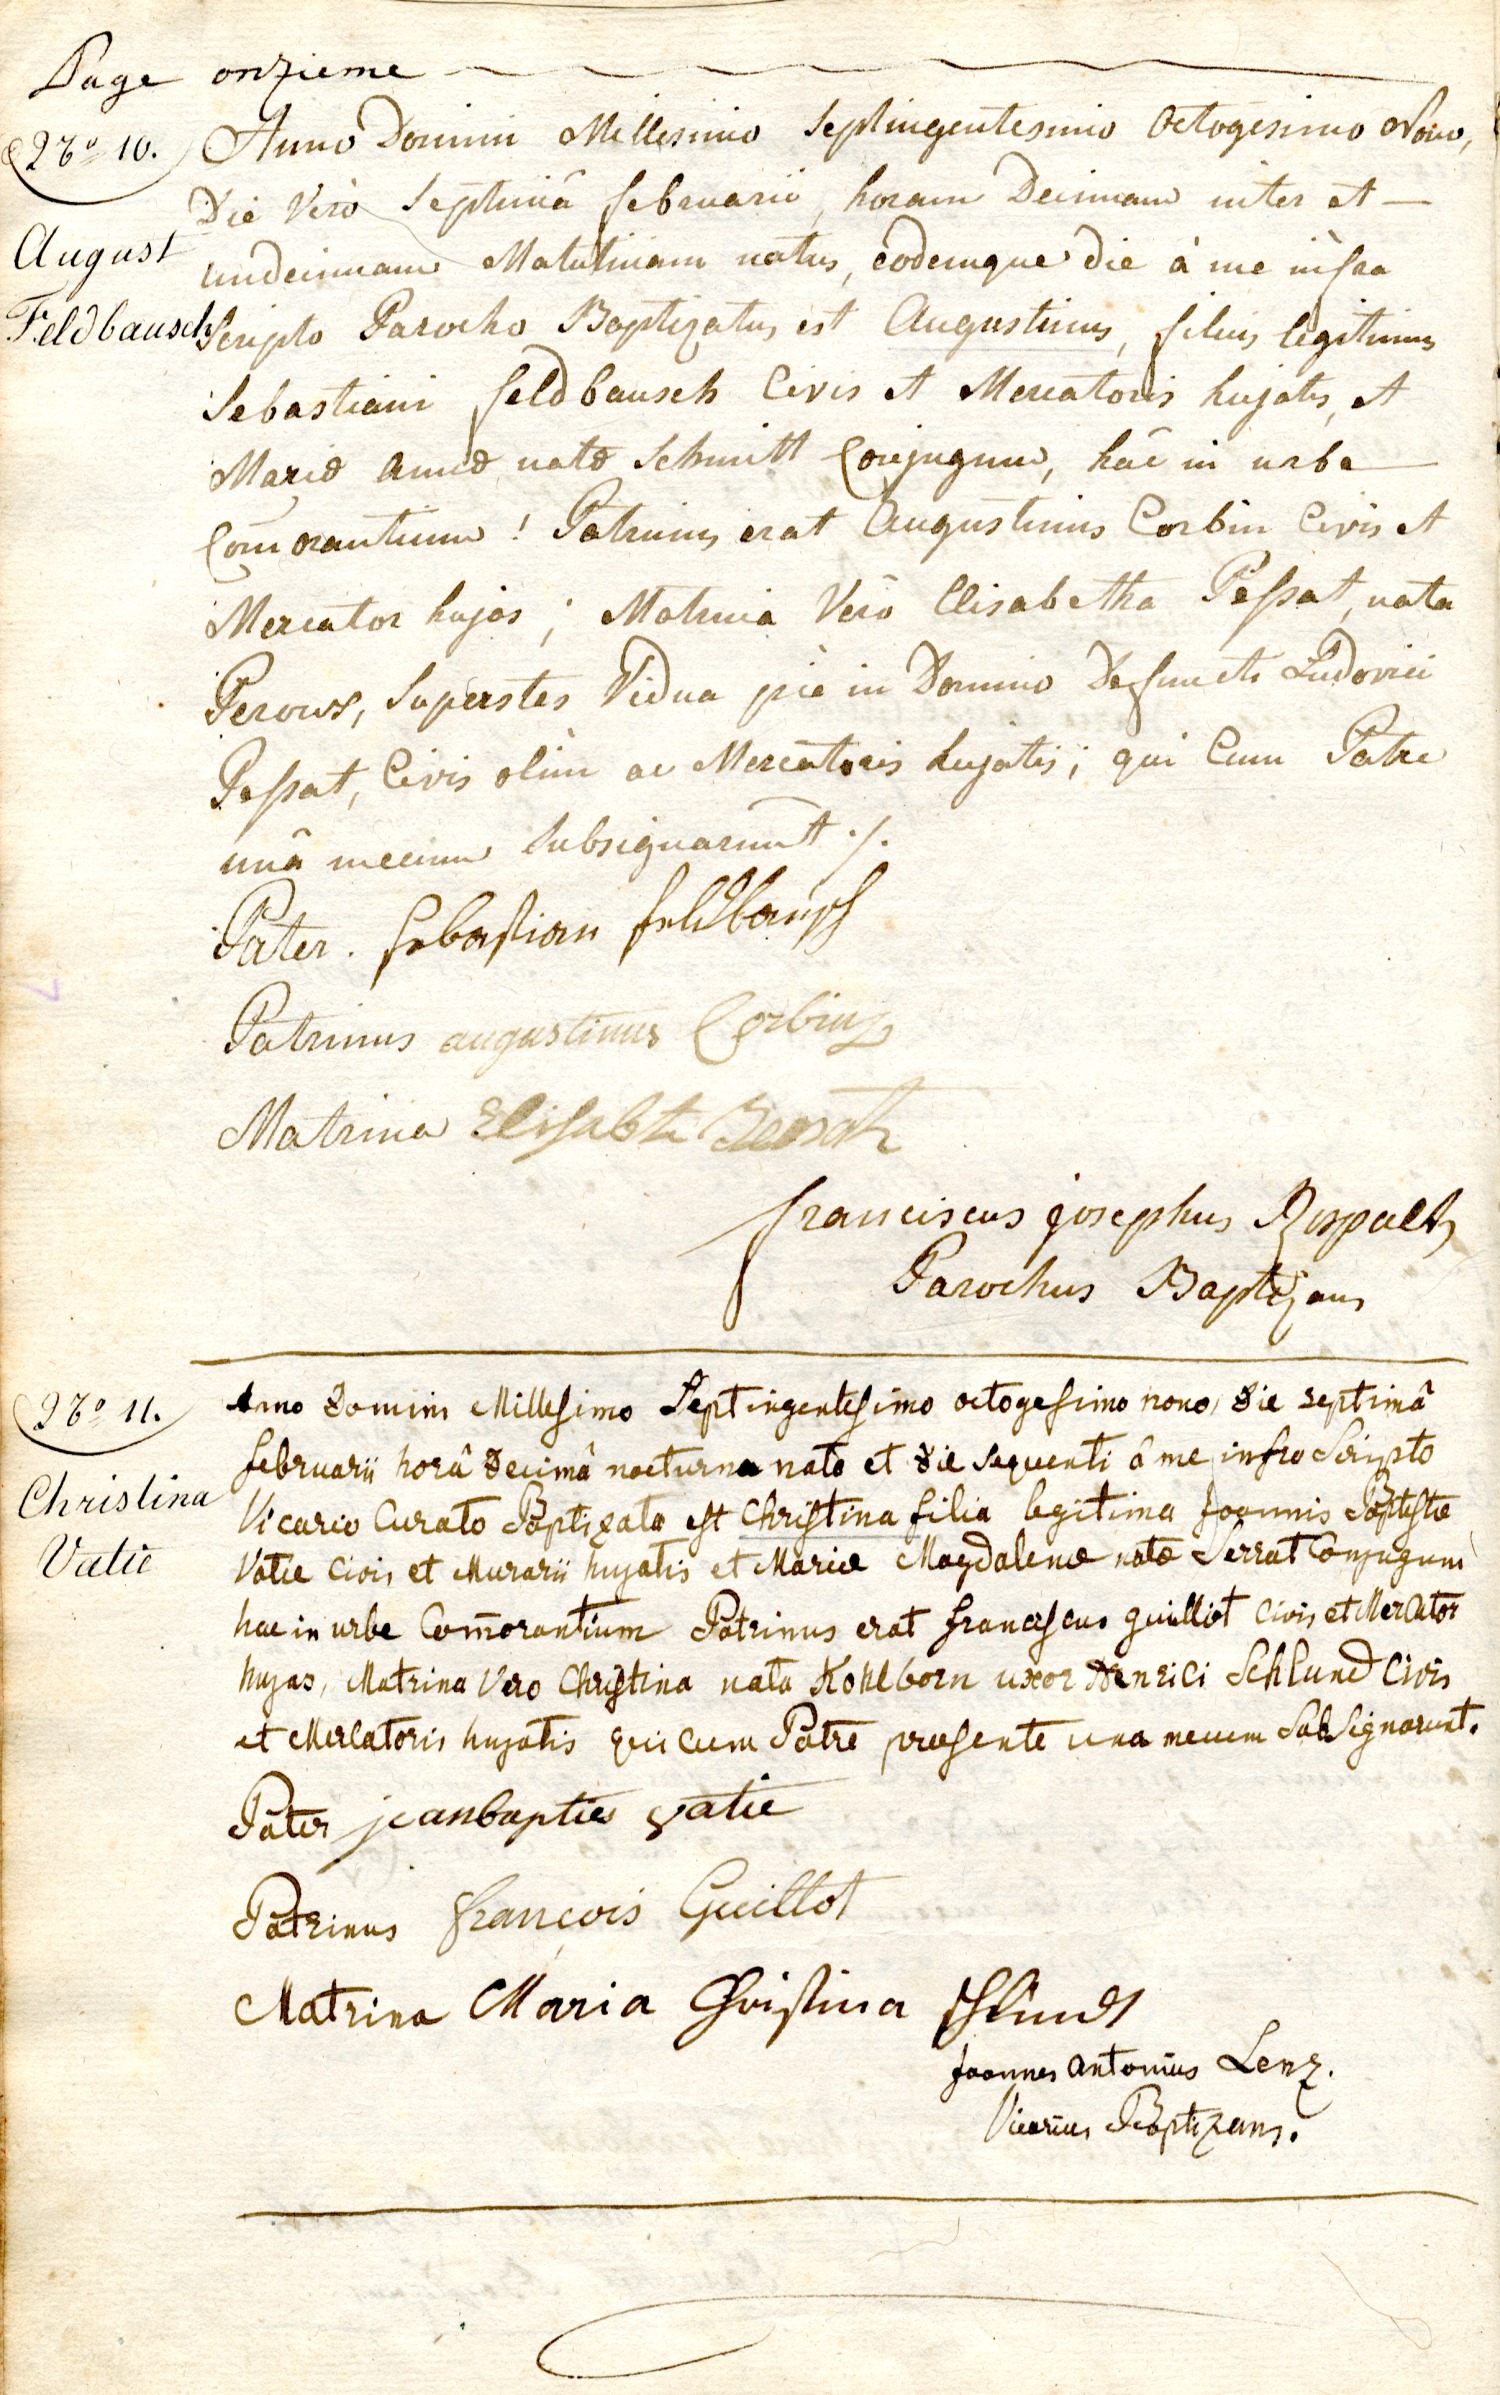 Page onzieme
Nº 10. Anno Domini Millesimo Septingentesimo Octogesimo Nono,
Die Verò Septimâ februarii, horam Decimam inter et —
August
undecimam Matutinam natus, eodemque die à me infra
Feldbausch
Scripto Parocho Baptizatus est Augustinus, filius legitimus
Sebastiani feldbausch Civis et Mercatoris hujatis, et
Mariæ Annæ natæ Schmitt Conjugum, hâc in urbe
Com̄orantium ! Patrinus erat Augustinus Corbin Civis et
Mercator hujas ; Matrina Verò Elisabetha Pessat, nata
Peroux, Superstes Vidua piè in Domino Defuncti Ludovici
Pessat, Civis olim ac Mercatoris hujatis ; qui Cum Patre
unâ mecum Subsignarunt ./.
Pater. Sebastian feldbausch
Patrinus augustinus Corbin
Matrina Elisabht
franciscus josephus
Parochus Baptizans
Nº 11. Anno Domini Millesimo Septingentesimo octogesimo nono, Die septimâ
februarii horâ Decimâ nocturna nata et Die sequenti â me infra Scripto
Christina
Vicario Curato Baptizata est Christina filia legitima Joannis Baptistæ
Vatie
Vatie Civis et Murarii hujatis et Mariæ Magdalenæ natæ Serrat Conjugum
hac in urbe Com̄orantium Patrinus erat franciscus guilliot Civis et Mercator
hujas, Matrina Vero Christina nata Kohlborn uxor Henrici Schlund Civis
et Mercatoris hujatis qui cum Patre præsente una mecum Subsignarunt.
Pater jeanbapties vatie
Patrinus françois Guillot
Matrina Maria Christina Schlundt
Joannes Antonius Lenz.
Vicarius Baptizans.